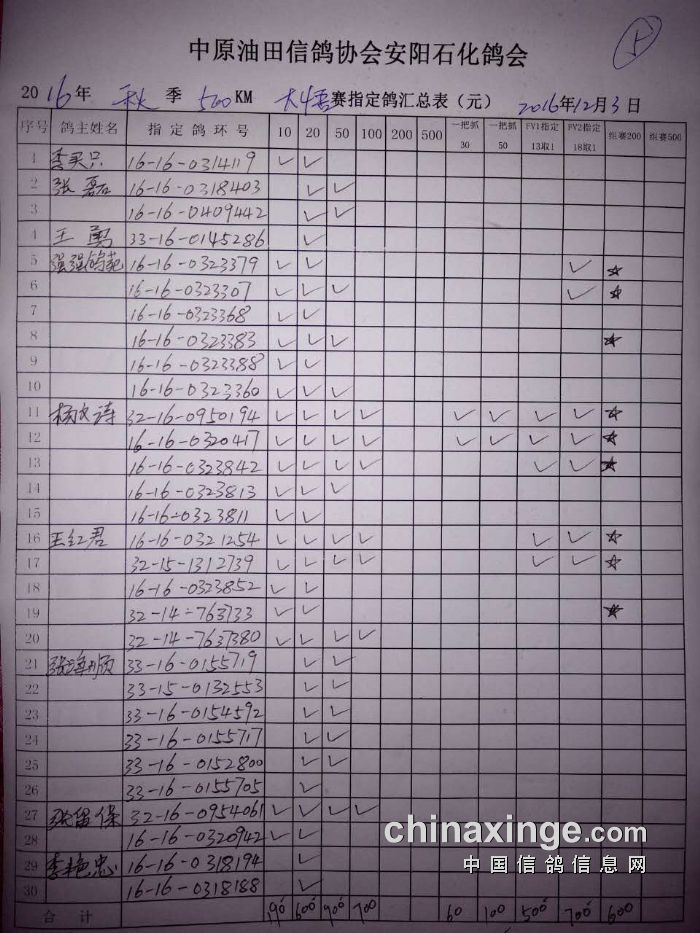 中原油田信鸽协会安阳石化鸽会
上
2016年 秋 季 500KM 大雪赛指定鸽汇总表（元） 2016年12月3日
序号 鸽主姓名 指定鸽环号 10 20 50 100 200 500 一把抓30 一把抓50 FV1指定13取1 FV2指定18取1 组赛200 组赛500
1 李买只 16-16-0314119 ✓ ✓
2 张磊 16-16-0318403 ✓ ✓
3 16-16-0409442 ✓ ✓
4 王勇 33-16-0145286 ✓
5 强强鸽苑 16-16-0323379 ✓ ✓ ✓ ☆
6 16-16-0323307 ✓ ✓ ✓ ✓ ☆
7 16-16-0323368 ✓ ✓
8 16-16-0323383 ✓ ✓ ✓ ☆
9 16-16-0323388 ✓ ✓
10 16-16-0323360 ✓ ✓ ✓
11 杨文诗 32-16-0950194 ✓ ✓ ✓ ✓ ✓ ✓ ✓ ✓ ☆
12 16-16-0320417 ✓ ✓ ✓ ✓ ✓ ✓ ✓ ✓ ☆
13 16-16-0323842 ✓ ✓ ✓ ✓ ✓ ✓ ☆
14 16-16-0323813 ✓ ✓ ✓
15 16-16-0323811 ✓ ✓
16 王红君 16-16-0321254 ✓ ✓ ✓ ✓ ✓ ✓ ☆
17 32-15-1312739 ✓ ✓ ✓ ✓ ✓ ✓ ☆
18 16-16-0323852 ✓ ✓
19 32-14-763733 ✓ ✓ ☆
20 32-14-7637380 ✓ ✓ ✓ ✓
21 张海顺 33-16-0155719 ✓ ✓
22 33-15-0132553 ✓ ✓
23 33-16-0154592 ✓ ✓
24 33-16-0155717 ✓ ✓
25 33-16-0152800 ✓ ✓
26 33-16-0155705 ✓
27 张留保 32-16-0954061 ✓ ✓ ✓ ✓
28 16-16-0320942 ✓ ✓
29 李艳忠 16-16-0318194 ✓
30 16-16-0318188 ✓
合计 190 600 900 700 60 100 500 700 600
chinaxinge.com
中国信鸽信息网